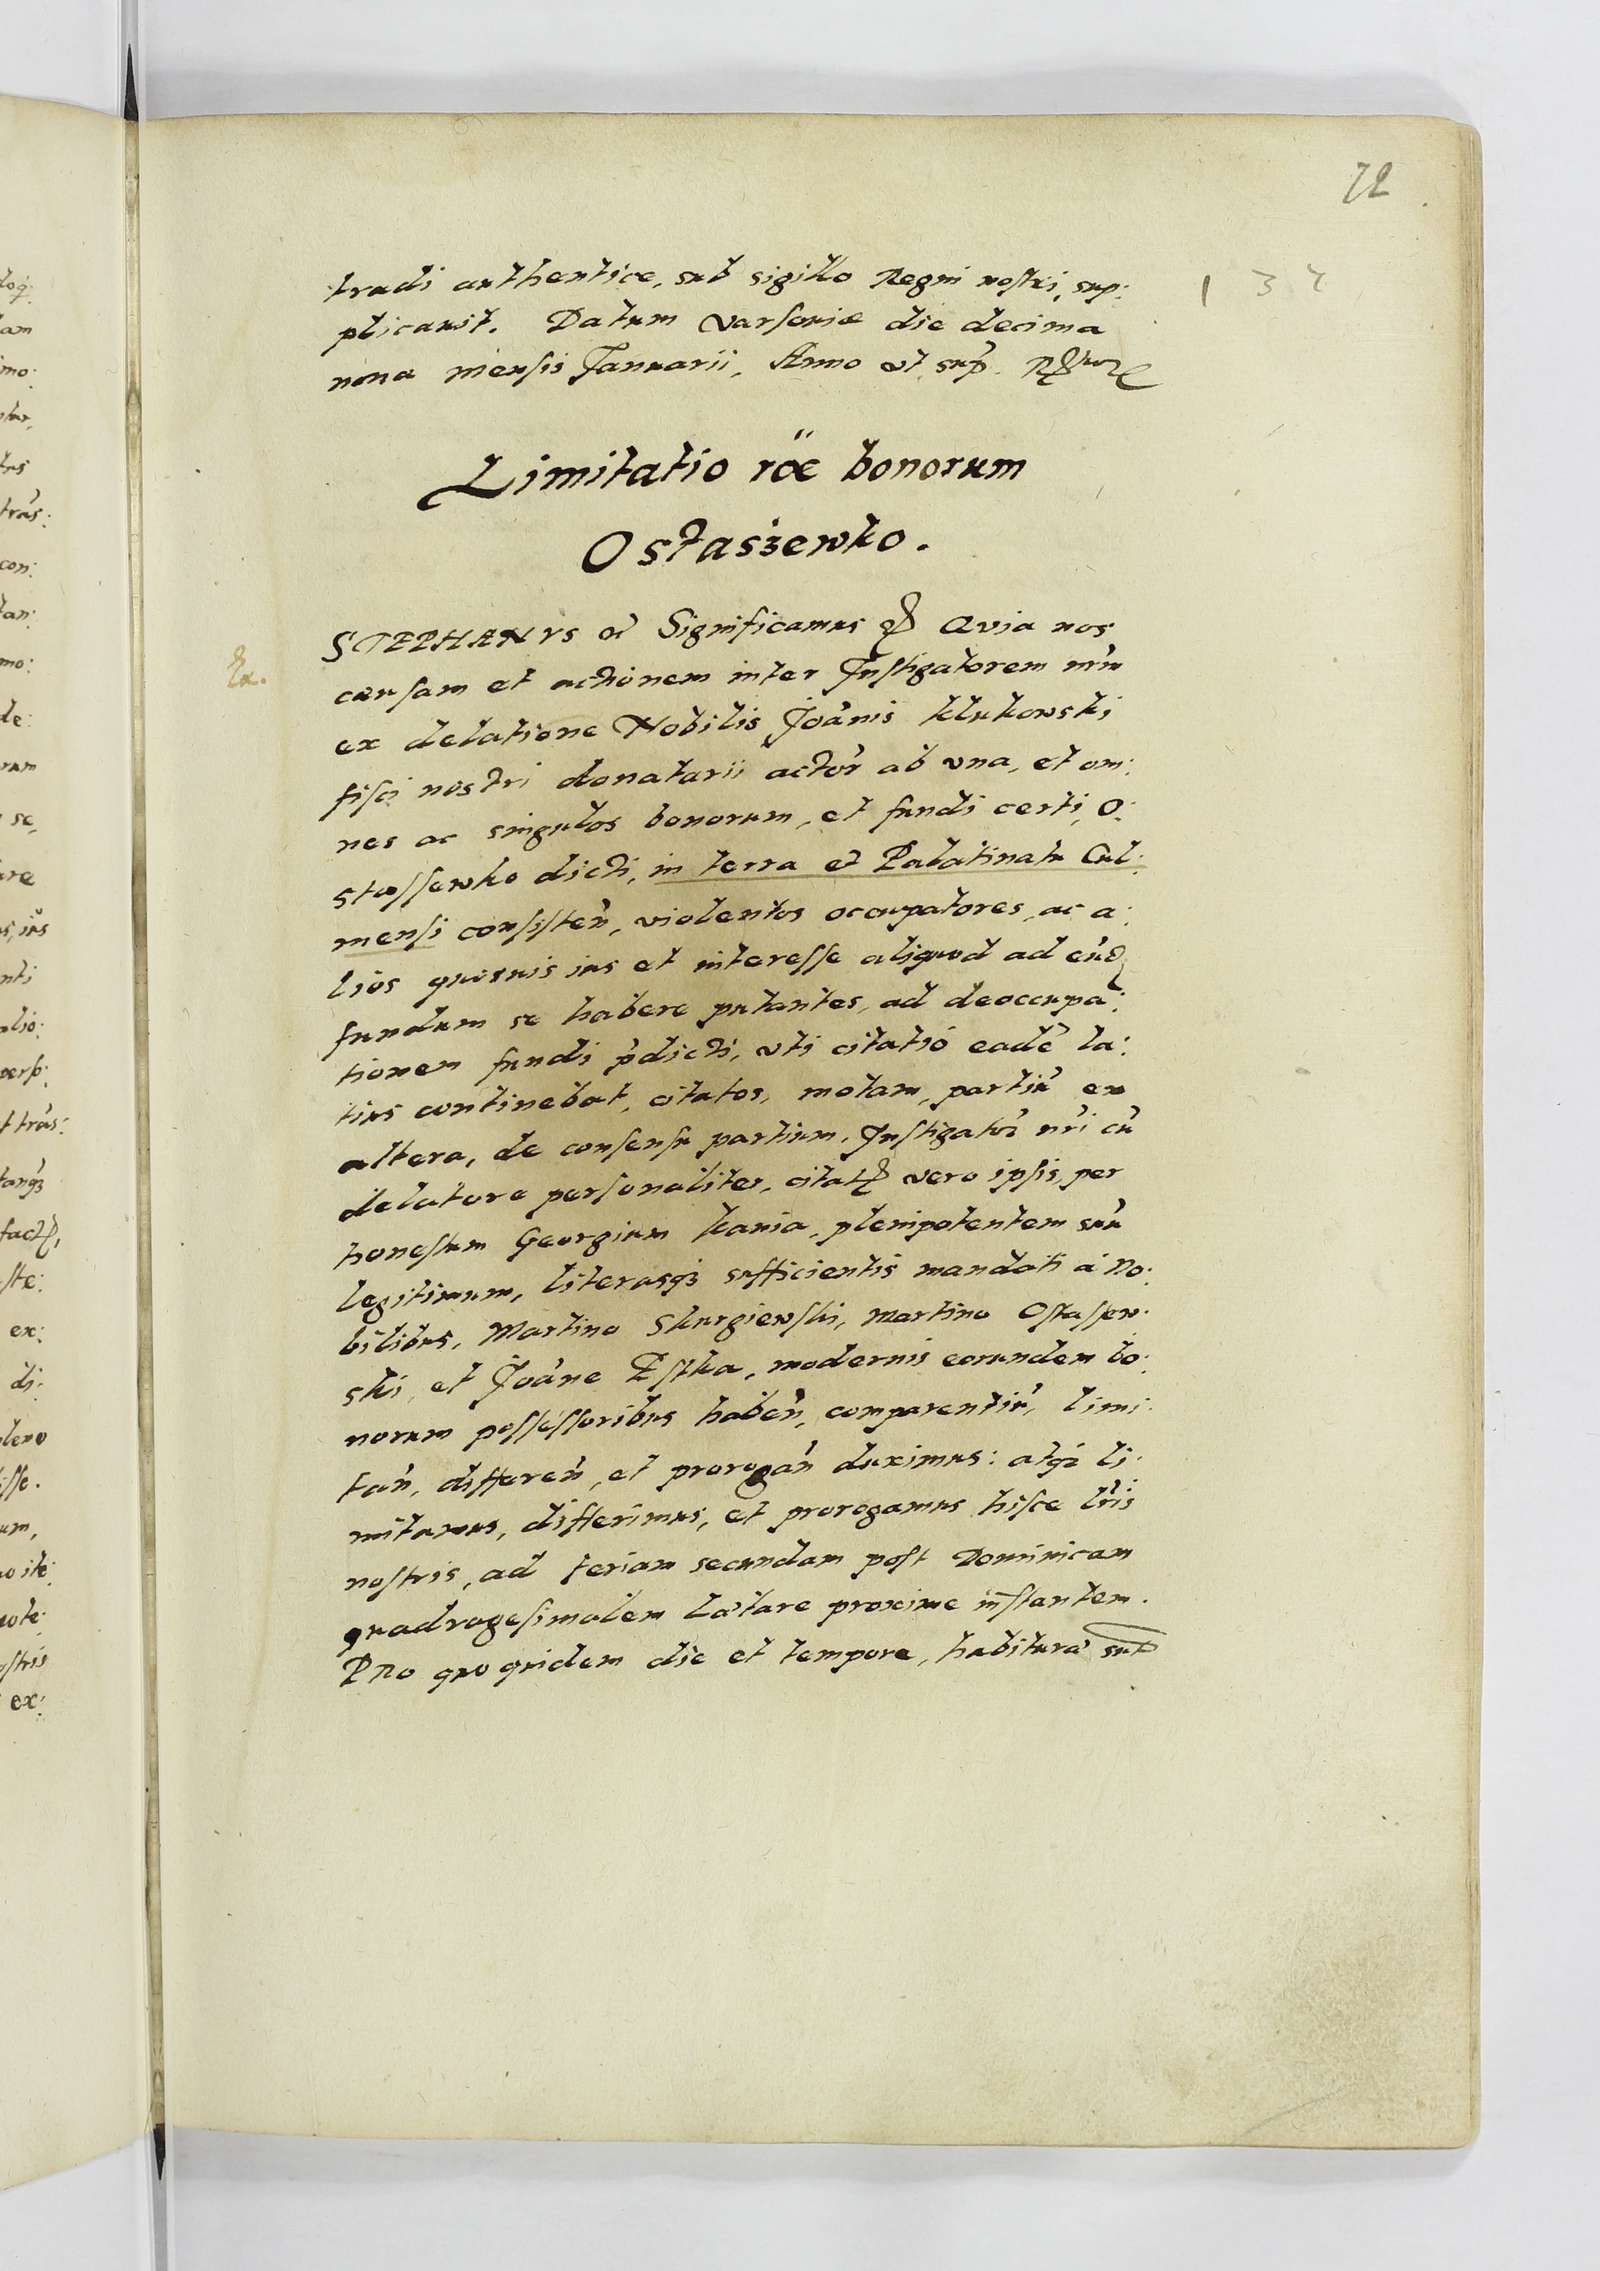 72
tradi authentice, sub sigillo Regni nostri, sup:
plicauit. Datum Varsouiæ die decima
nona mensis Januarii, Anno vt sup̃.
Limitatio rõe bonorum
Ostaszewko.
STEPHANVS &c Significamus &c Qvia nos
causam et actionem inter Instigatorem nr̃m
ex delatione Nobilis Joãnis Klukowski
fisci nostri donatarii actor̃ ab vna, et om:
nes ac singulos bonorum, et fundi certi, O:
stassewko dicti, in terra et Palatinatu Cul:
mensi consisteñ, violentos occupatores, ac a:
lios quosuis ius et interesse aliquod ad eund
fundum se habere putantes, ad deoccupa:
tionem fundi p̃dicti, vti citatio eadẽ la:
tius continebat, citatos, motam, partiũ ex
altera, de consensu partium, Instigator̃ nr̃i cũ
delatore personaliter, citat vero ipsis, per
honestum Georgium Kania, plenipotentem suũ
legitimum, literasqꝫ sufficientis mandati à no:
bilibus, Martino Skurgiewski, Martino Ostassew:
ski, et Joãne Pstka, modernis eorundem bo:
norum possessoribus habeñ, comparentiũ, limi:
tañ, differeñ, et prorogañ duximus: atqꝫ li:
mitamus, differimus, et prorogamus hisce lr̃is
nostris, ad feriam secundam post Dominicam
quadragesimalem Lætare proxime instantem.
PRo quo quidem die et tempore, habitura sub